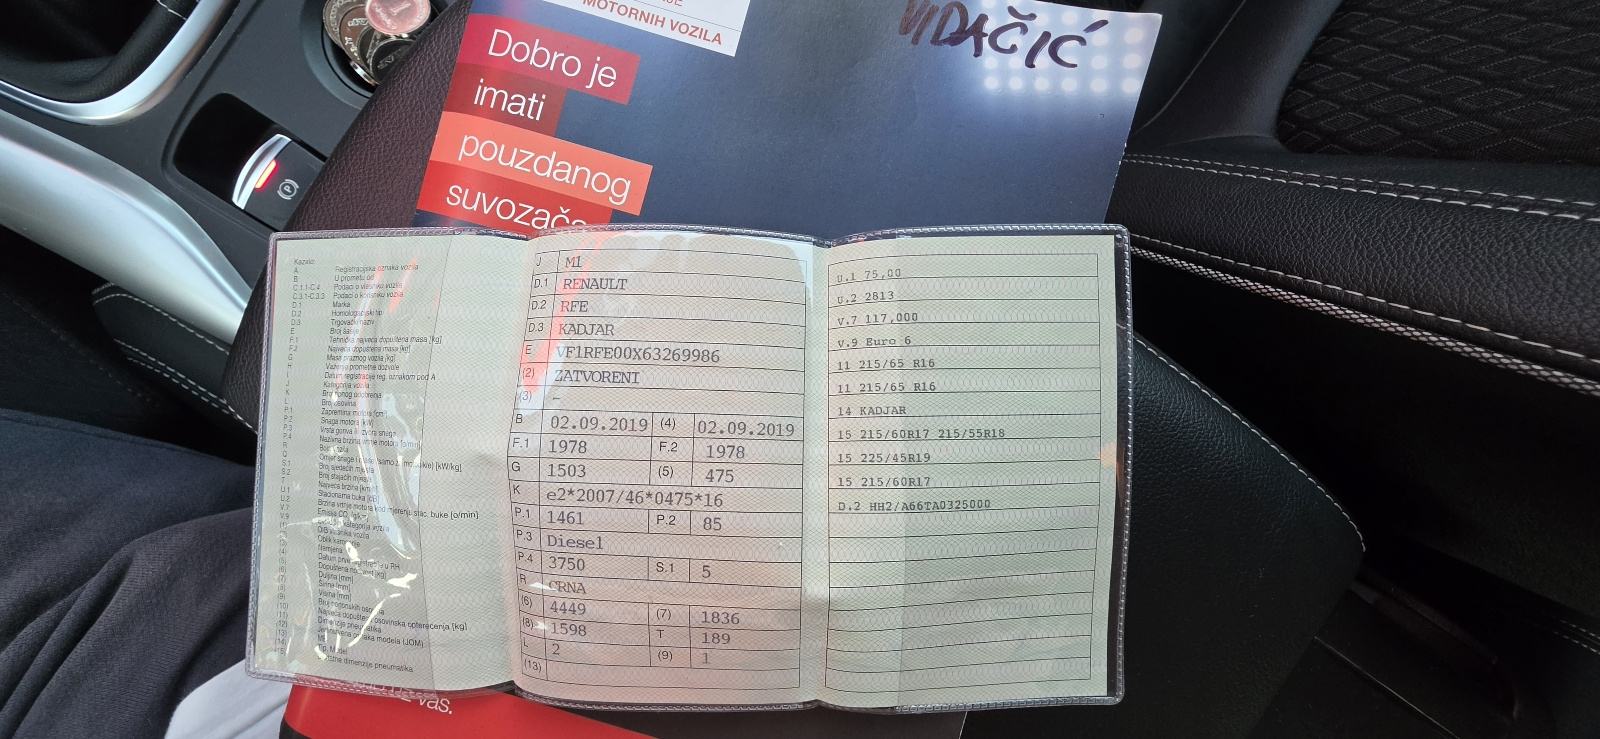 MOTORNIH VOZILA
VIDAČIĆ
Dobro je
imati
pouzdanog
suvozača
Kazalo:
A Registracijska oznaka vozila
B U prometu od
C.1.1-C.4 Podaci o vlasniku vozila
C.3.1-C.3.3 Podaci o korisniku vozila
D.1 Marka
D.2 Homologacijski tip
D.3 Trgovački naziv
E Broj šasije
F.1 Tehnička najveća dopuštena masa [kg]
F.2 Najveća dopuštena masa [kg]
G Masa praznog vozila [kg]
H Važenje prometne dozvole
I Datum registracije reg. oznakom pod A
J Kategorija vozila
K Broj tipnog odobrenja
L Broj osovina
P.1 Zapremina motora [cm³]
P.2 Snaga motora [kW]
P.3 Vrsta goriva ili izvora snage
P.4 Nazivna brzina vrtnje motora [o/min]
R Boja vozila
Q Omjer snage i mase (samo za motocikle) [kW/kg]
S.1 Broj sjedećih mjesta
S.2 Broj stajaćih mjesta
T Najveća brzina [km/h]
U.1 Stacionarna buka [dB]
U.2 Brzina vrtnje motora kod mjerenja stac. buke [o/min]
V.7 Emisija CO₂ [g/km]
V.9
(1) OIB vlasnika vozila
(2) Oblik karoserije
(3) Namjena
(4) Datum prve registracije u RH
(5) Dopuštena nosivost [kg]
(6) Duljina [mm]
(7) Širina [mm]
(8) Visina [mm]
(9) Broj pogonskih osovina
(10) Najveća dopuštena osovinska opterećenja [kg]
(11) Dimenzije pneumatika
(12)
(13) oznaka modela (JOM)
(14) Model
dimenzije pneumatika
J M1
D.1 RENAULT
D.2 RFE
D.3 KADJAR
E VF1RFE00X63269986
(2) ZATVORENI
(3) –
B 02.09.2019 (4) 02.09.2019
F.1 1978 F.2 1978
G 1503 (5) 475
K e2*2007/46*0475*16
P.1 1461 P.2 85
P.3 Diesel
P.4 3750 S.1 5
R CRNA
(6) 4449 (7) 1836
(8) 1598 T 189
L 2 (9) 1
(13)
U.1 75,00
U.2 2813
V.7 117,000
V.9 Euro 6
11 215/65 R16
11 215/65 R16
14 KADJAR
15 215/60R17 215/55R18
15 225/45R19
15 215/60R17
D.2 HH2/A66TA0325000
vas.